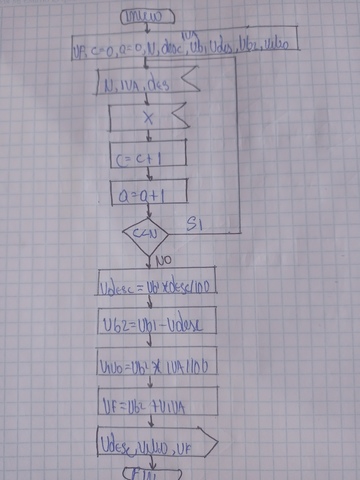 INICIO
VF, C=0, a=0, N, desc, IVA, Vb1, Vdes, Vb2, VIVA
N, IVA, des
X
C=C+1
a=a+1
C<N
SI
NO
Vdesc=Vb1*desc/100
Vb2=Vb1-Vdesc
VIVA=Vb2*IVA/100
VF=Vb2+VIVA
Vdesc, VIVA, VF
FIN